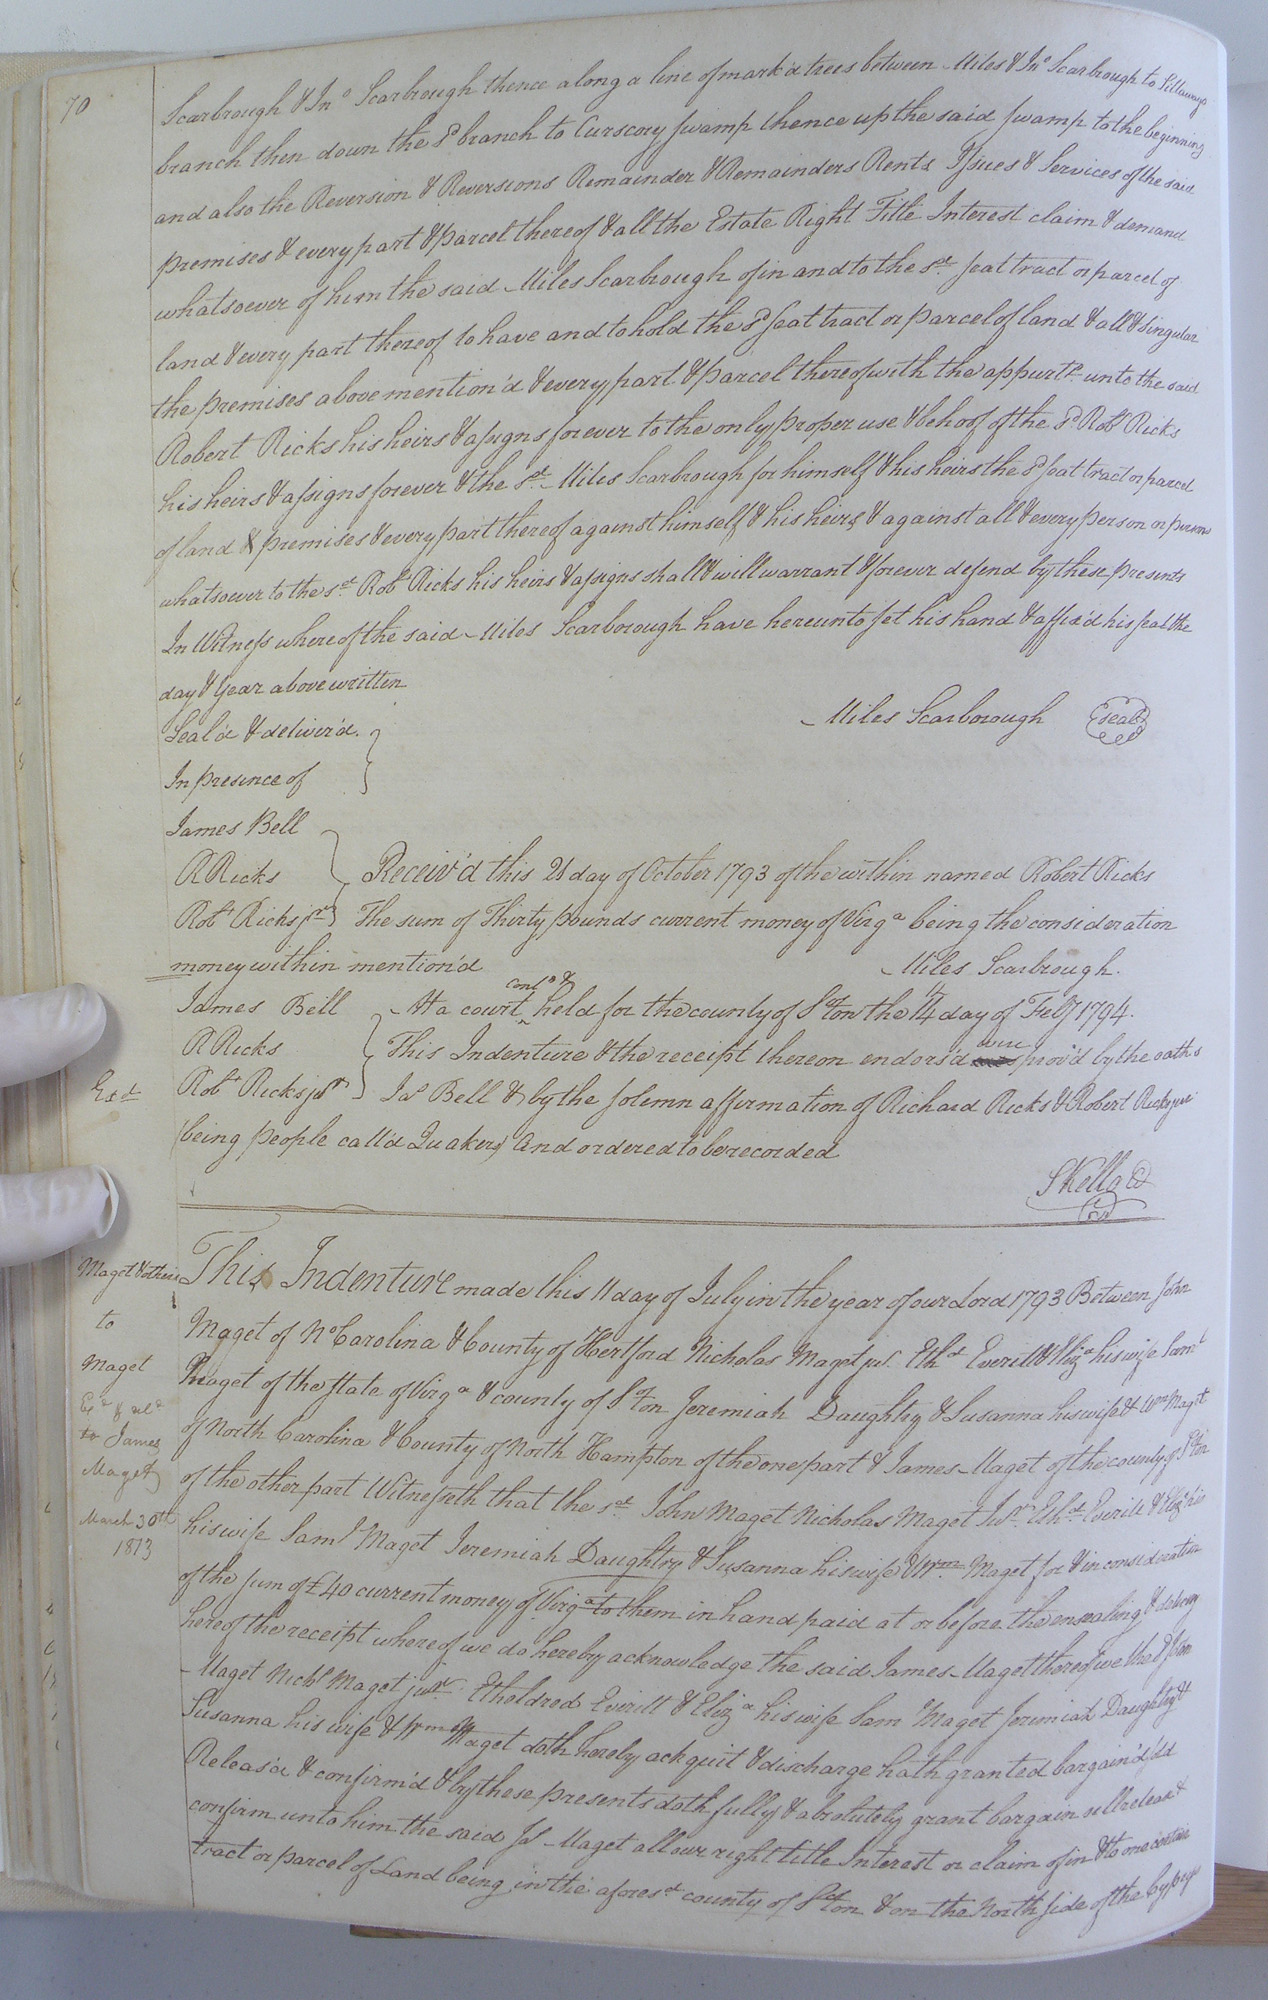 70
Scarbrough & Jno Scarbrough thence along a line of mark'd trees between Miles & Jno Scarbrough to
branch then down the sd branch to Curscory swamp thence up the said swamp to the beginning
and also the Reversion & Reversions Remainder & Remainders Rents Issues & Services of the said
premises & every part & parcel thereof & all the Estate Right Title Interest claim & demand
whatsoever of him the said Miles Scarbrough of in and to the sd. seat tract or parcel of
land & every part thereof to have and to hold the sd seat tract or parcel of land & all & singular
the premises above mention'd & every part & parcel thereof with the appurts. unto the said
Robert Ricks his heirs & assigns forever to the only proper use & behoof of the sd Robt Ricks
his heirs & assigns forever & the sd. Miles Scarbrough for himself & his heirs the sd seat tract or parcel
of land & premises & every part thereof against himself & his heirs & against all & every person or persons
whatsoever to the sd. Robt Ricks his heirs & assigns shall & will warrant & forever defend by these presents
In Witness whereof the said Miles Scarborough have hereunto set his hand & affix'd his seal the
day & Year above written
Miles Scarborough seal
Seal'd & deliver'd
In presence of
James Bell
R Ricks Receiv'd this 21 day of October 1793 of the within named Robert Ricks
Robt Ricks jr The sum of Thirty pounds current money of Virga being the consideration
money within mention'd Miles Scarbrough.
James Bell At a court contd & held for the county of Soton the 14 day of Feby 1794.
R Ricks This Indenture & the receipt thereon endors'd were prov'd by the oath s
Exd Robt Ricks jr Jas Bell & by the solemn affirmation of Richard Ricks & Robert Ricks jun
(being people call'd Quakers) And ordered to be recorded
SKello Cl
Cur
Maget & others
to
Maget
Exd & deld
to James
Maget
March 30th
1813
This Indenture made this 11 day of July in the year of our Lord 1793 Between John
Maget of No Carolina & County of Hertford Nicholas Maget jur. Ethd Everitt & Eliza his wife Saml
Maget of the state of Virga & county of Soton Jeremiah Daughtry & Susanna his wife & Wm Maget
of North Carolina & County of North Hampton of the one part & James Maget of the county of Soton
of the other part Witnesseth that the sd. John Maget Nicholas Maget Jur. Ethd Everitt & Eliza his
his wife Saml Maget Jeremiah Daughtry & Susanna his wife & Wm Maget for & in consideration
of the sum of £40 current money of Virga to them in hand paid at or before the ensealing & delivery
hereof the receipt whereof we do hereby acknowledge the said James Maget thereof we the sd John
Maget Nichs Maget junr Etheldred Everitt & Eliza his wife Saml Maget Jeremiah Daughtry &
Susanna his wife & Wm Maget doth hereby ackquit & discharge hath granted bargain'd s'ld
Releas'd & confirm'd & by these presents doth fully & absolutely grant bargain sell release &
confirm unto him the said Js Maget all our right title Interest or claim of in & to one certain
tract or parcel of Land being in the aforesd county of Soton & on the North side of the